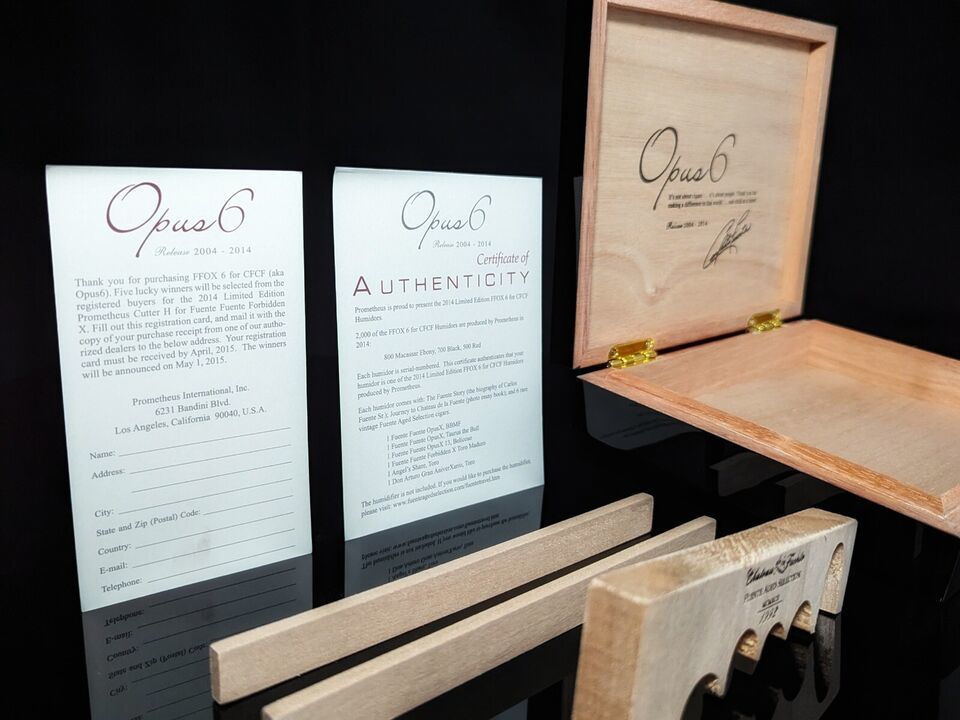 Opus6
Release 2004 - 2014
Thank you for purchasing FFOX 6 for CFCF (aka
Opus6). Five lucky winners will be selected from the
registered buyers for the 2014 Limited Edition
Prometheus Cutter H for Fuente Fuente Forbidden
X. Fill out this registration card, and mail it with the
copy of your purchase receipt from one of our autho-
rized dealers to the below address. Your registration
card must be received by April, 2015. The winners
will be announced on May 1, 2015.
Prometheus International, Inc.
6231 Bandini Blvd.
Los Angeles, California 90040, U.S.A.
Name:
Address:
City:
State and Zip (Postal) Code:
Country:
E-mail:
Telephone:
Opus6
Release 2004 - 2014
Certificate of
AUTHENTICITY
Prometheus is proud to present the 2014 Limited Edition FFOX 6 for CFCF
Humidors.
2,000 of the FFOX 6 for CFCF Humidors are produced by Prometheus in
2014:
800 Macassar Ebony, 700 Black, 500 Red
Each humidor is serial-numbered. This certificate authenticates that your
humidor is one of the 2014 Limited Edition FFOX 6 for CFCF Humidors
produced by Prometheus.
Each humidor comes with: The Fuente Story (the biography of Carlos
Fuente Sr.); Journey to Chateau de la Fuente (photo essay book); and 6 rare
vintage Fuente Aged Selection cigars.
1 Fuente Fuente OpusX, BBMF
1 Fuente Fuente OpusX, Taurus the Bull
1 Fuente Fuente OpusX 13, Belicoso
1 Fuente Fuente Forbidden X Toro Maduro
1 Angel's Share, Toro
1 Don Arturo Gran AniverXario, Toro
The humidifier is not included. If you would like to purchase the humidifier,
please visit: www.fuenteagedselection.com/fuentetravel.htm
Opus6
It's not about cigars
it's about people.
making a difference in the world
Release 2004 - 2014
Chateau Fuente
FUENTE AGED SELECTION
1992